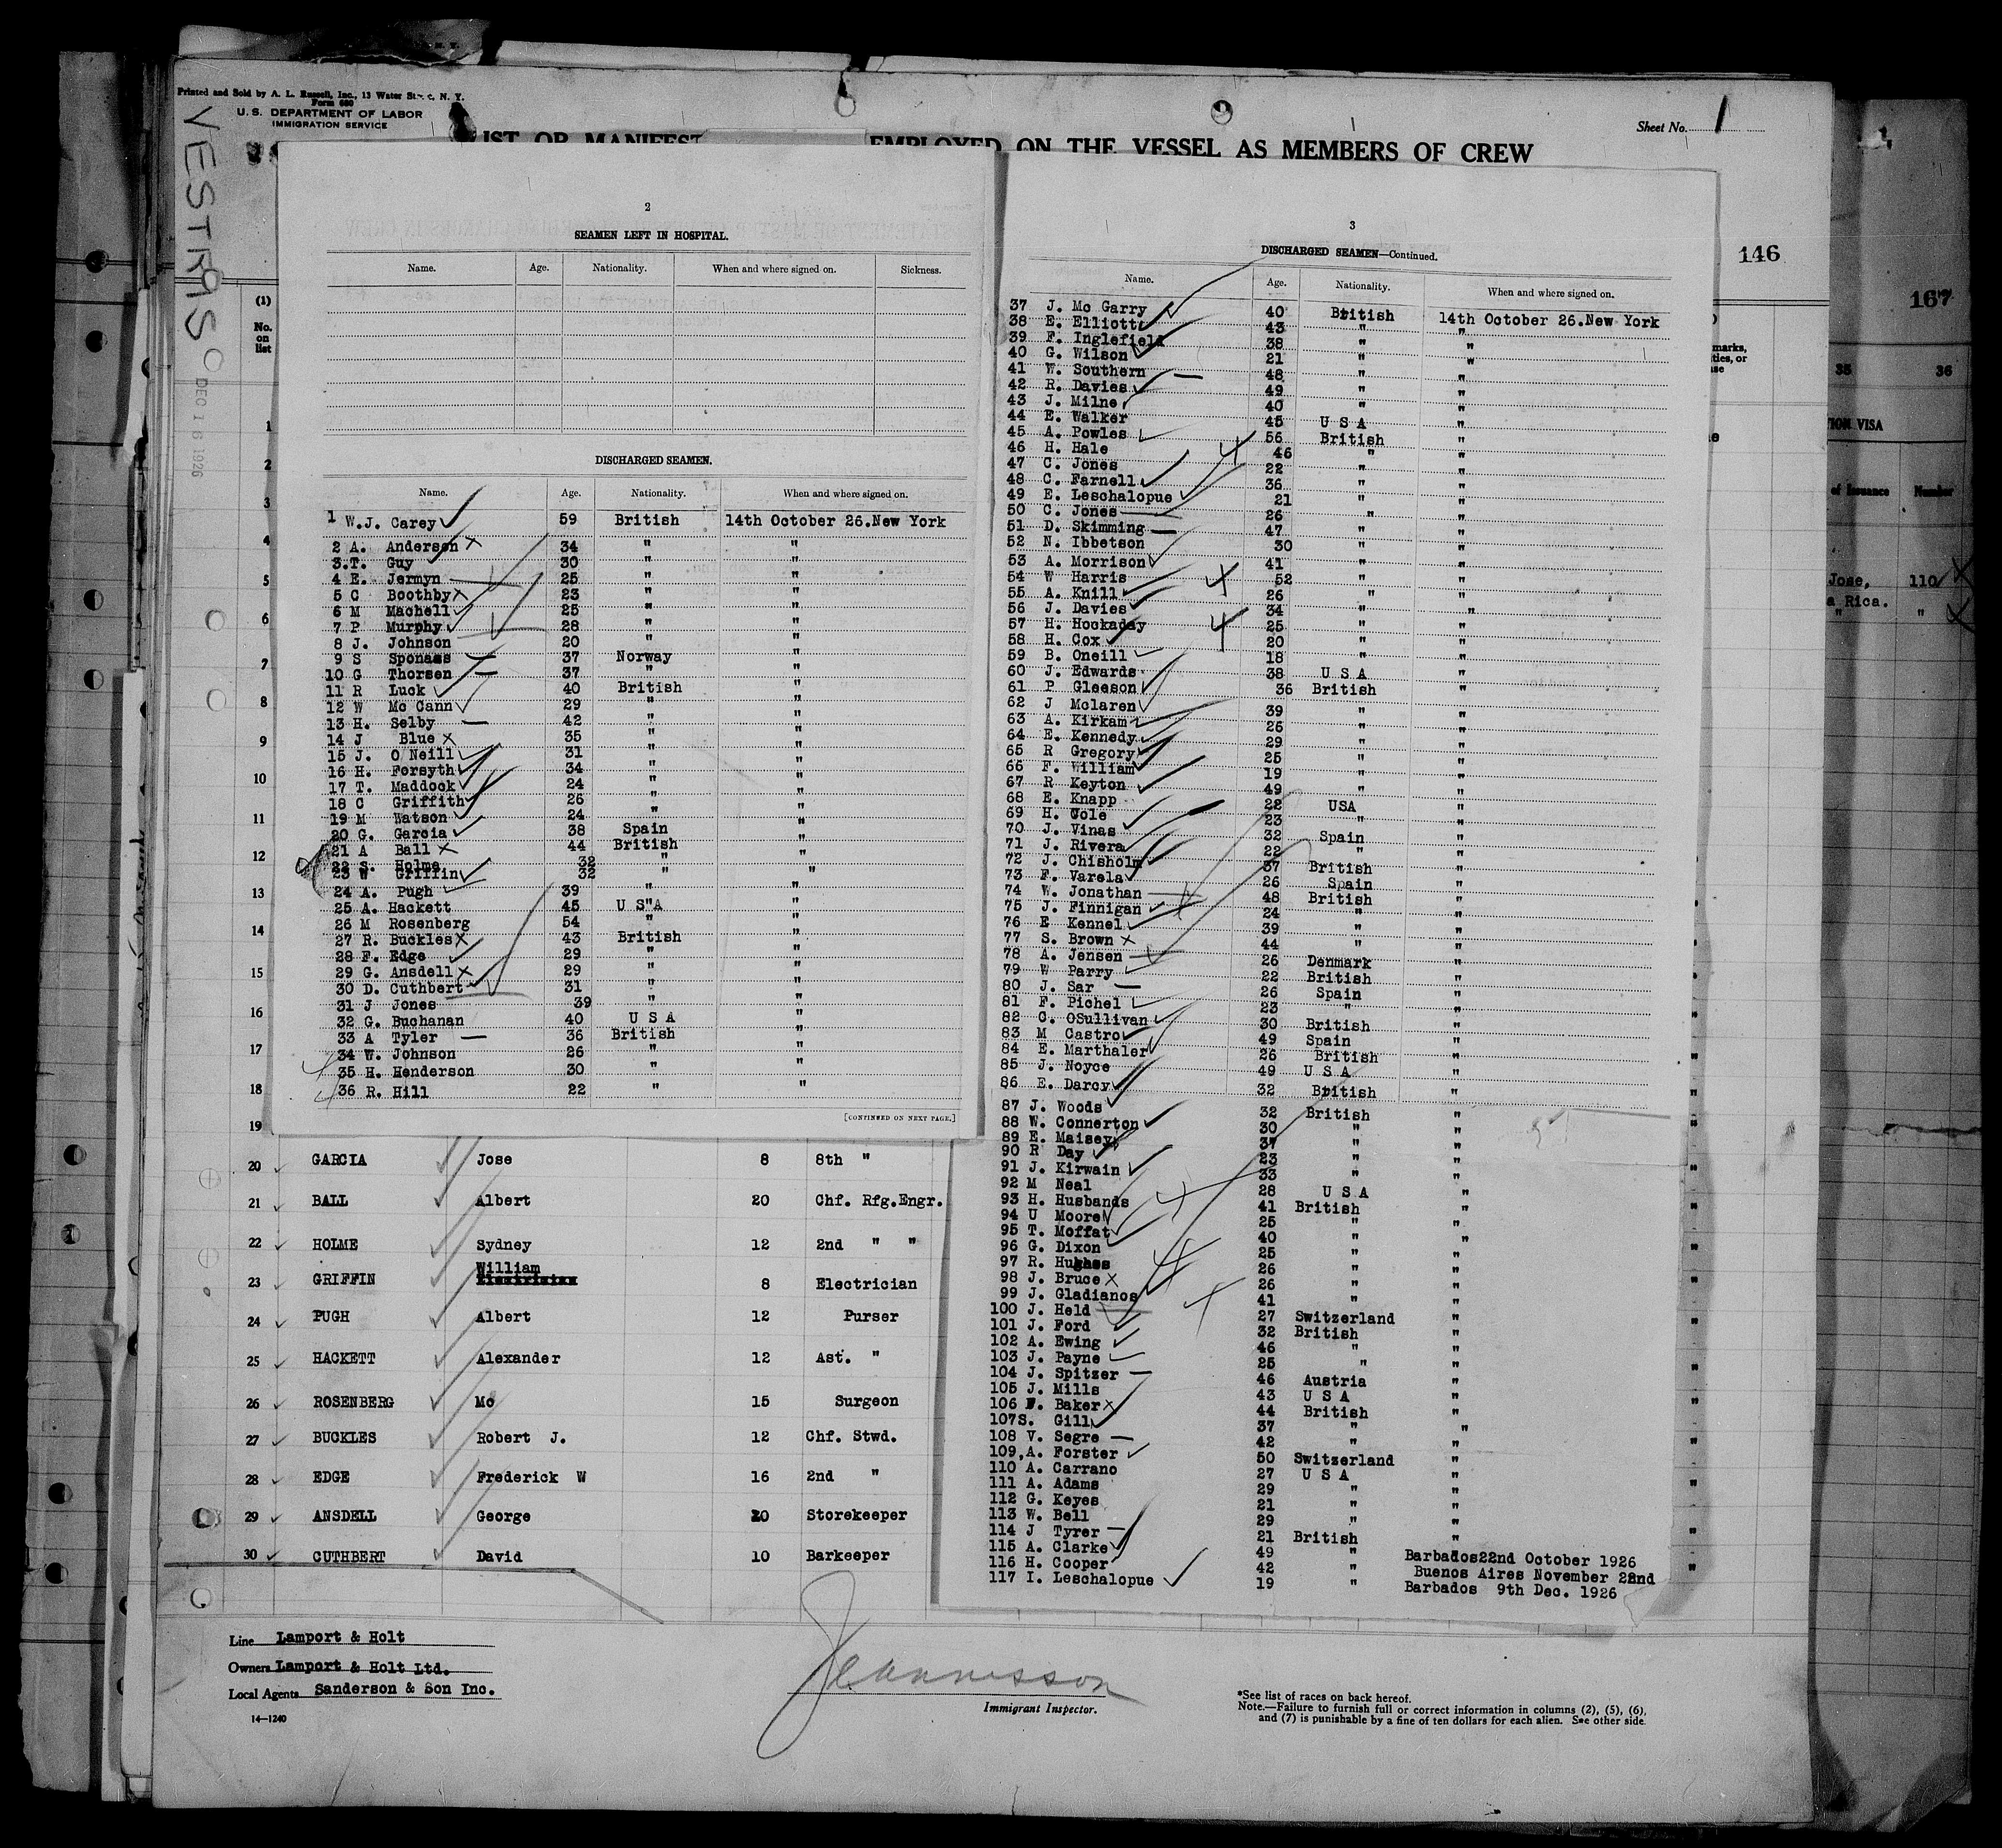 Printed and Sold by A. L. Russell, Inc., 13 Water St., N. Y.
Form 680
U. S. DEPARTMENT OF LABOR
IMMIGRATION SERVICE
VESTRIS
DEC 16 1926
LIST OR MANIFEST EMPLOYED ON THE VESSEL AS MEMBERS OF CREW
Sheet No. 1
146
167
35 36
marks,
ties, or
TION VISA
of Issuance Number
Jose, 110
a Rica. "
(1)
No.
on
list
1
2
3
4
5
6
7
8
9
10
11
12
13
14
15
16
17
18
19
2
SEAMEN LEFT IN HOSPITAL.
Name. Age. Nationality. When and where signed on. Sickness.
DISCHARGED SEAMEN.
Name. Age. Nationality. When and where signed on.
1 W.J. Carey 59 British 14th October 26.New York
2 A. Anderson 34 " "
3.T. Guy 30 " "
4 E. Jermyn 25 " "
5 C Boothby 23 " "
6 M Machell 25 " "
7 P Murphy 28 " "
8 J. Johnson 20 " "
9 S Sponass 37 Norway "
10 G Thorsen 37 " "
11 R Luck 40 British "
12 W Mc Cann 29 " "
13 H. Selby 42 " "
14 J Blue 35 " "
15 J. O Neill 31 " "
16 H. Forsyth 34 " "
17 T. Maddock 24 " "
18 C Griffith 26 " "
19 M Watson 24 " "
20 G. Garcia 38 Spain "
21 A Ball 44 British "
22 S. Holme 32 "
23 W Griffin 32 " "
24 A. Pugh 39 " "
25 A. Hackett 45 U S A "
26 M Rosenberg 54 " "
27 R. Buckles 43 British "
28 F. Edge 29 " "
29 G. Ansdell 29 " "
30 D. Cuthbert 31 " "
31 J Jones 39 " "
32 G. Buchanan 40 U S A "
33 A Tyler 36 British "
34 W. Johnson 26 " "
35 H. Henderson 30 " "
36 R. Hill 22 " "
[CONTINUED ON NEXT PAGE.]
3
DISCHARGED SEAMEN—Continued.
Name. Age. Nationality. When and where signed on.
37 J. Mc Garry 40 British 14th October 26.New York
38 E. Elliott 43 " "
39 F. Inglefield 38 " "
40 G. Wilson 21 " "
41 W. Southern 48 " "
42 R. Davies 49 " "
43 J. Milne 40 " "
44 E. Walker 45 U S A "
45 A. Powles 56 British "
46 H. Hale 46 " "
47 C. Jones 22 " "
48 C. Farnell 36 " "
49 E. Leschalopue 21 " "
50 C. Jones 26 " "
51 D. Skimming 47 " "
52 N. Ibbetson 30 " "
53 A. Morrison 41 " "
54 W Harris 52 " "
55 A. Knill 26 " "
56 J. Davies 34 " "
57 H. Hockaday 25 " "
58 H. Cox 20 " "
59 B. Oneill 18 " "
60 J. Edwards 38 U S A "
61 P Gleeson 36 British "
62 J Mclaren 39 " "
63 A. Kirkam 26 " "
64 E. Kennedy 29 " "
65 R Gregory 25 " "
66 F. William 19 " "
67 R Keyton 49 " "
68 E. Knapp 28 USA "
69 H. Cole 23 " "
70 J. Vinas 32 Spain "
71 J. Rivera 22 " "
72 J. Chisholm 37 British "
73 F. Varela 26 Spain "
74 W. Jonathan 48 British "
75 J. Finnigan 24 " "
76 E Kennel 39 " "
77 S. Brown 44 " "
78 A. Jensen 26 Denmark "
79 W Parry 22 British "
80 J. Sar 26 Spain "
81 F. Pichel 23 " "
82 C. OSullivan 30 British "
83 M Castro 49 Spain "
84 E. Marthaler 26 British "
85 J. Noyce 49 U S A "
86 E. Darcy 32 British "
87 J. Woods 32 British "
88 W. Connerton 30 " "
89 E. Maisey 37 " "
90 R Day 23 " "
91 J. Kirwain 33 " "
92 M Neal 28 U S A "
93 H. Husbands 41 British "
94 U Moore 25 " "
95 T. Moffat 40 " "
96 G. Dixon 25 " "
97 R. Hughes 26 " "
98 J. Bruce 26 " "
99 J. Gladianos 41 " "
100 J. Held 27 Switzerland "
101 J. Ford 32 British "
102 A. Ewing 46 " "
103 J. Payne 25 " "
104 J. Spitzer 46 Austria "
105 J. Mills 43 U S A "
106 F. Baker 44 British "
107S. Gill 37 " "
108 V. Segre 42 " "
109,A. Forster 50 Switzerland "
110 A. Carrano 27 U S A "
111 A. Adams 29 " "
112 G. Keyes 21 " "
113 W. Bell 29 " "
114 J Tyrer 21 British "
115 A. Clarke 49 " Barbados22nd October 1926
116 H. Cooper 42 " Buenos Aires November 22nd
117 I. Leschalopue 19 " Barbados 9th Dec. 1926
20 GARCIA Jose 8 8th "
21 BALL Albert 20 Chf. Rfg.Engr.
22 HOLME Sydney 12 2nd " "
23 GRIFFIN William 8 Electrician
24 PUGH Albert 12 Purser
25 HACKETT Alexander 12 Ast. "
26 ROSENBERG Mc 15 Surgeon
27 BUCKLES Robert J. 12 Chf. Stwd.
28 EDGE Frederick W 16 2nd "
29 ANSDELL George 20 Storekeeper
30 CUTHBERT David 10 Barkeeper
Line Lamport & Holt
Owners Lamport & Holt Ltd.
Local Agents Sanderson & Son Inc.
14—1240
Immigrant Inspector.
*See list of races on back hereof.
Note.—Failure to furnish full or correct information in columns (2), (5), (6),
and (7) is punishable by a fine of ten dollars for each alien. See other side.